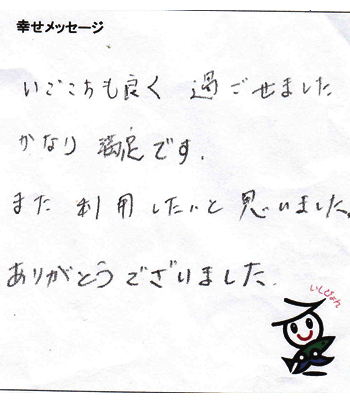 幸せメッセージ
いごこちも良く 過ごせました
かなり 満足です.
また 利用したいと 思いました。
ありがとうございました.
いしぴょん